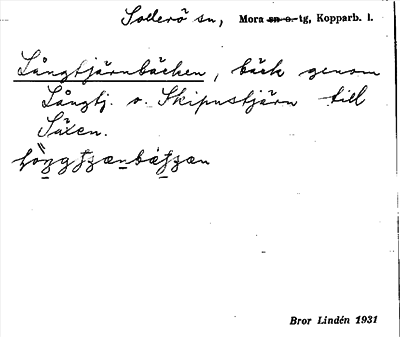 Sollerö sn, Mora sn o. tg, Kopparb. l.
Långtjärnbäcken, bäck genom
Långtj. o. Skipustjärn till
Säxen.
Bror Lindén 1931